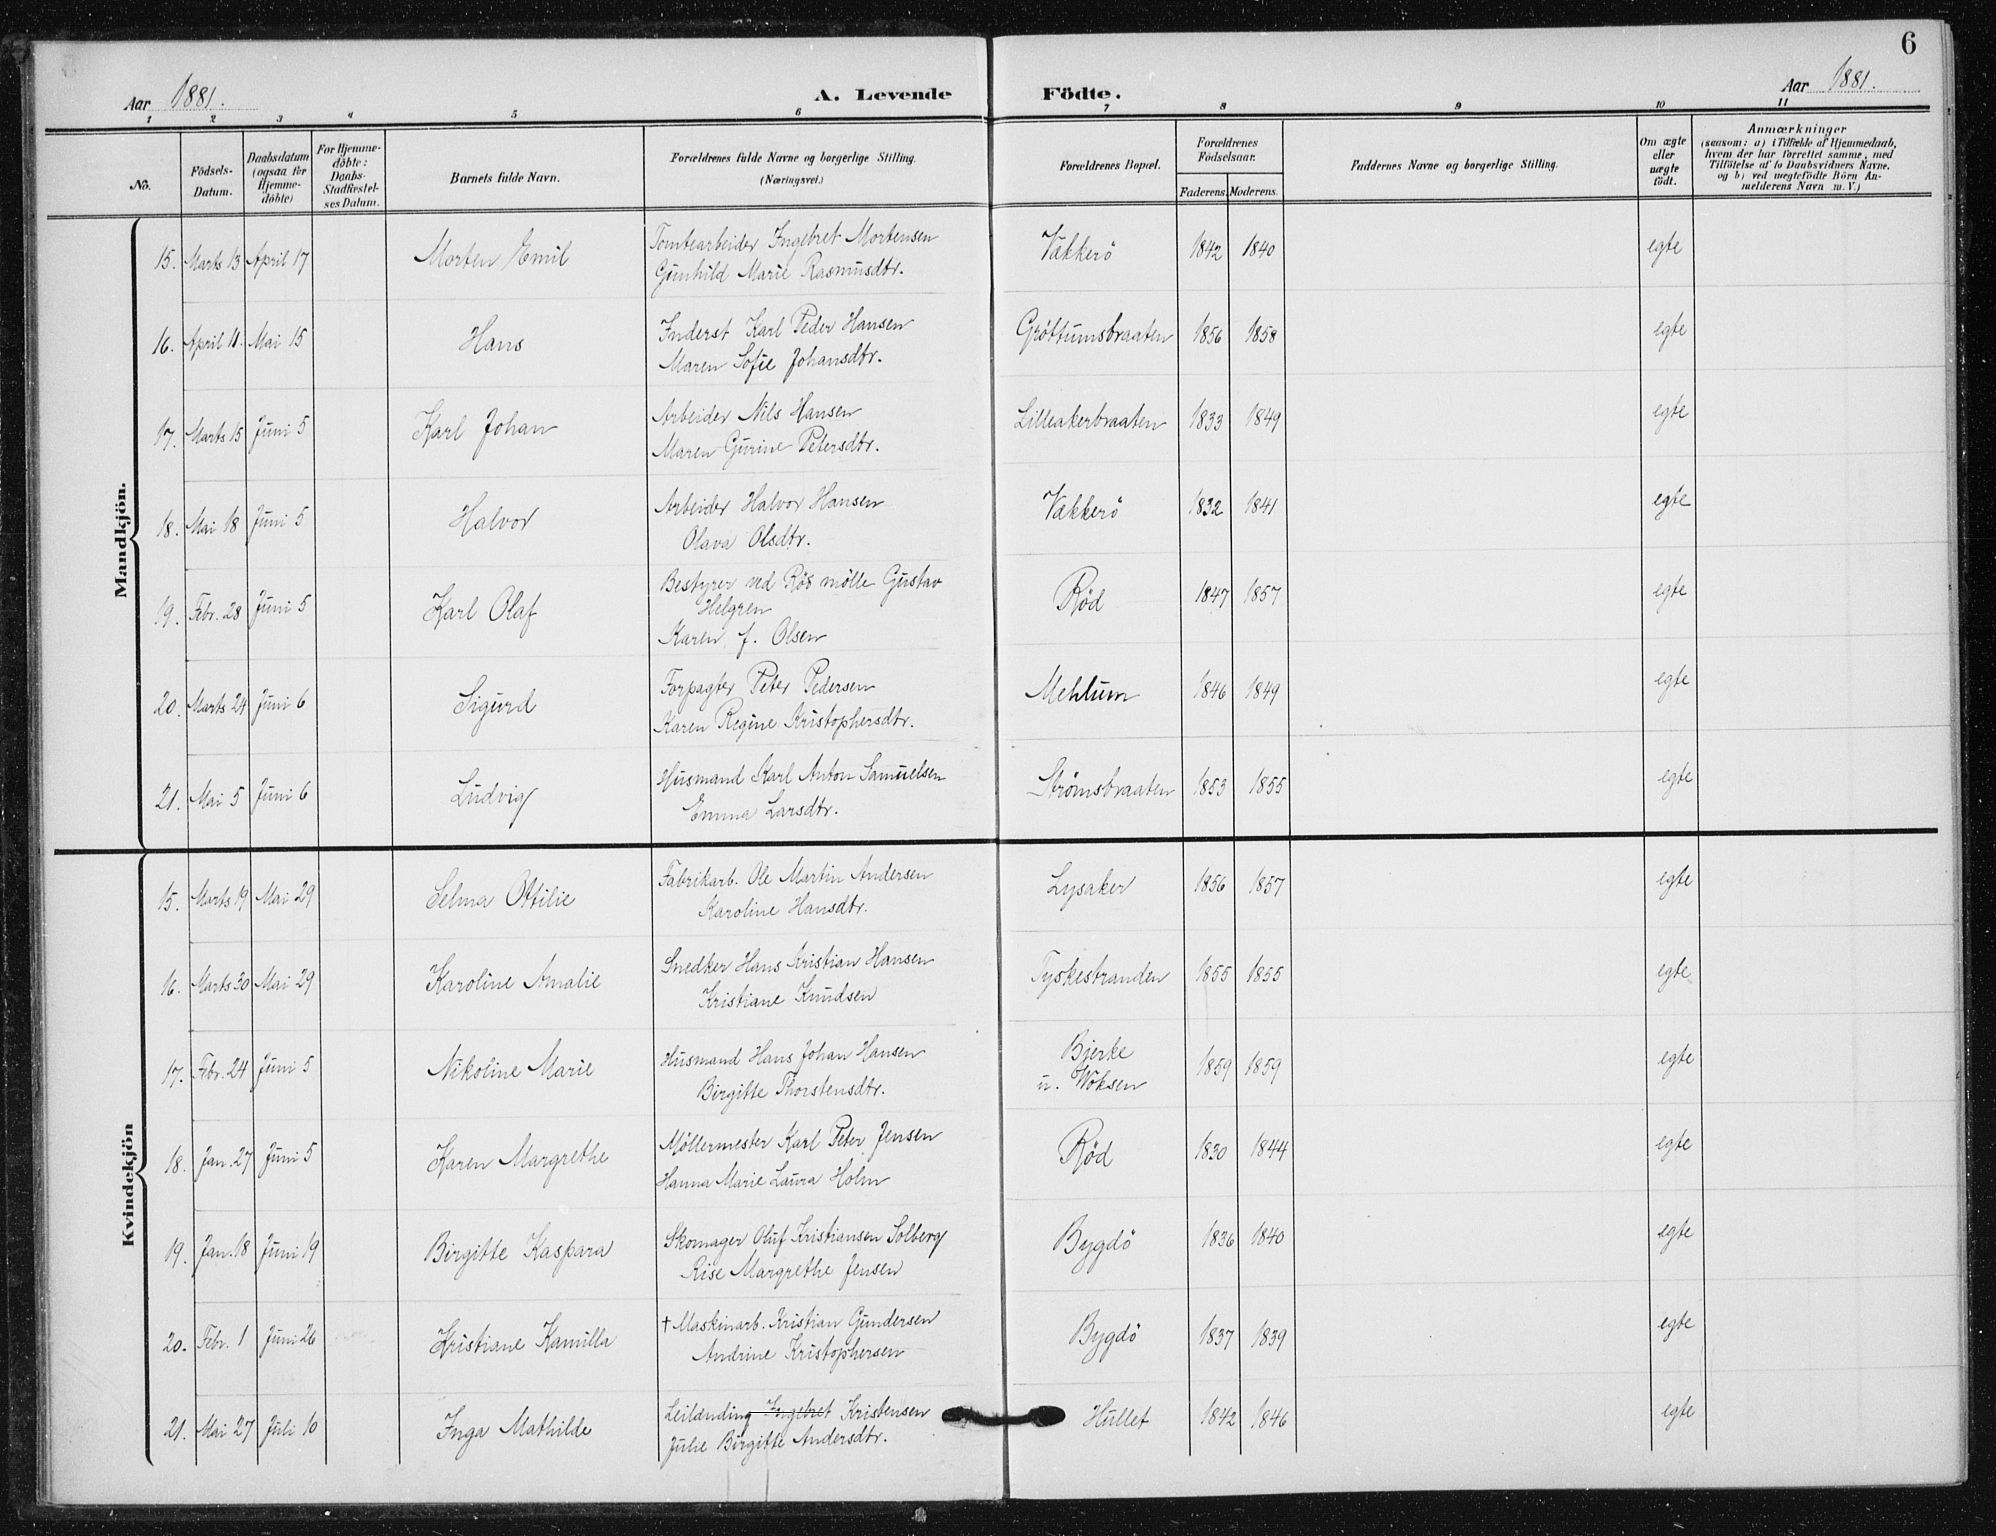 6
Aar 1881.
A. Levende Födte.
Aar 1881.
1 2 3 4 5 6 7 8 9 10 11
No.
Födsels-
Datum.
Daabsdatum
(ogsaa for
Hjemme-
döbte)
For Hjemme-
döbte:
Daabs-
Stadfæstel-
ses Datum.
Barnets fulde Navn.
Forældrenes fulde Navne og borgerlige Stilling.
(Næringsvei.)
Forældrenes Bopæl.
Forældrenes
Födselsaar.
Faderens. Moderens.
Faddernes Navne og borgerlige Stilling.
Om ægte
eller
uægte
födt.
Anmærkninger
(saasom: a) i Tilfælde af Hjemmedaab,
hvem der har forrettet samme, med
Tilföielse af to Daabsvidners Navne.
og b) ved uægtefödte Börn An-
melderens Navn m. V.)
Mandkjön.
15. Marts 13 April 17 Morten Emil Tomtearbeider Ingebret Mortensen Vækkerö 1842 1840 egte
Gunhild Marie Rasmusdtr.
16. April 11. Mai 15 Hans Inderst Karl Peder Hansen Gröttumsbraaten 1856 1858 egte
Maren Sofie Johansdtr.
17. Marts 15 Juni 5 Karl Johan Arbeider Nils Hansen Lilleakerbraaten 1833 1849 egte
Maren Gurine Petersdtr.
18. Mai 18 Juni 5 Halvor Arbeider Halvor Hansen Vækkerö 1832 1841 egte
Olava Olsdtr.
19. Febr. 28 Juni 5 Karl Olaf Bestyrer ved Röd mölle Gustav Röd 1847 1857 egte
Helgren
Karen f. Olsen
20. Marts 24 Juni 6 Sigurd Forpagter Peter Pedersen Mehlum 1846 1849 egte
Karen Regine Kristophersdtr.
21. Mai 5 Juni 6 Ludvig Husmand Karl Anton Samuelsen Strömsbraaten 1853 1855 egte
Emma Larsdtr.
Kvindekjön
15. Marts 19 Mai 29 Selma Ottilie Fabrikarb. Ole Martin Andersen Lysaker 1856 1857 egte
Karoline Hansdtr.
16. Marts 30 Mai 29 Karoline Amalie Snedker Hans Kristian Hansen Tyskestranden 1855 1855 egte
Kristiane Knudsen
17. Febr. 24 Juni 5 Nikoline Marie Husmand Hans Johan Hansen Bjerke 1859 1859 egte
Birgitte Thorstensdtr. u. Woksen
18. Jan. 27 Juni 5 Karen Margrethe Möllermester Karl Peter Jensen Röd 1830 1844 egte
Hanna Marie Laura Holm
19. Jan. 18 Juni 19 Birgitte Kaspara Skomager Oluf Kristiansen Solberg Bygdö 1836 1840 egte
Rise Margrethe Jensen
20. Febr. 1 Juni 26 Kristiane Kamilla † Maskinarb. Kristian Gundersen Bygdö 1837 1839 egte
Andrine Kristophersen
21. Mai 27 Juli 10 Inga Mathilde Leilænding Ingebret Kristensen Hullet 1842 1846 egte
Julie Birgitte Andersdtr.